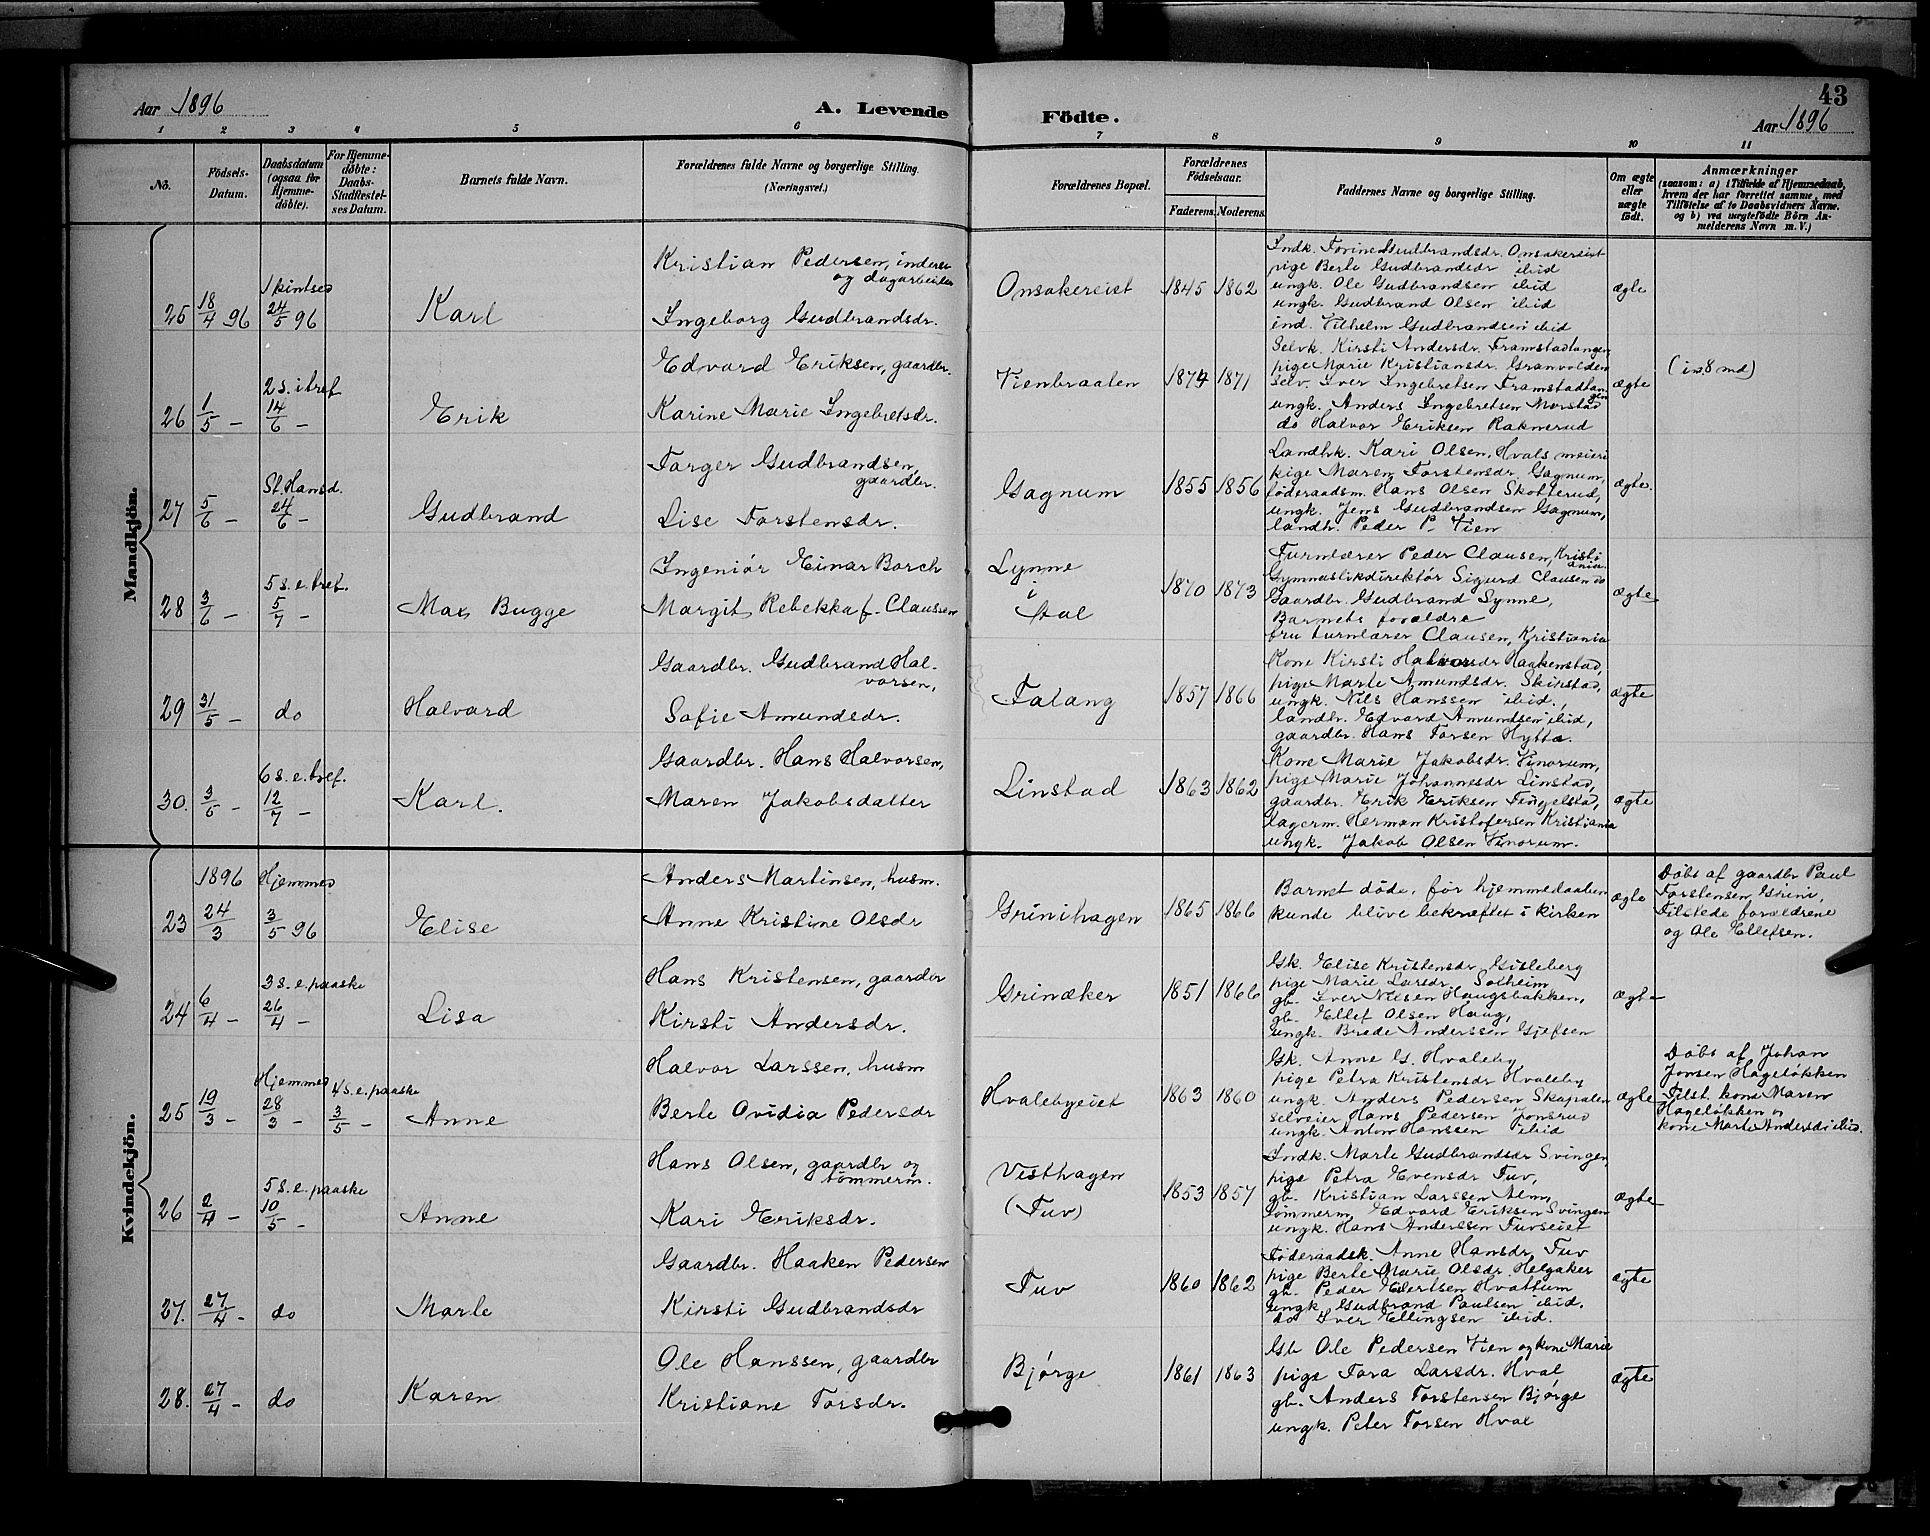 Aar 1896
A. Levende
Födte.
43
Aar 1896
1 2 3 4 5 6 7 8 9 10 11
No.
Födsels-
Datum.
Daabsdatum
(ogsaa for
Hjemme-
döbte).
For Hjemme-
döbte:
Daabs-
Stadfæstel-
ses Datum.
Barnets fulde Navn.
Forældrenes fulde Navne og borgerlige Stilling.
(Næringsvei.)
Forældrenes Bopæl.
Forældrenes
Födselsaar.
Faderens.
Moderens.
Faddernes Navne og borgerlige Stilling.
Om ægte
eller
uægte
födt.
Anmærkninger
(saasom: a) i Tilfælde af Hjemmedaab,
hvem der har forrettet samme, med
Tilföielse af to Daabsvidners Navne.
og b) ved uægtefödte Börn An-
melderens Navn m. V.)
Mandkjön.
25 18/4 96
1 pintsed
24/5 96
Karl
Kristian Pedersen, inderst
og dagarbeider
Ingeborg Gudbrandsdr.
Onsakereiet
1845 1862
Indk. Torine Gudbrandsdr. Onsakereiet
pige Berte Gudbrandsdr ibid
ungk. Ole Gudbrandsen ibid
ungk. Gudbrand Olsen ibid
ind. Vilhelm Gudbrandsen ibid
ægte
26 1/5 –
2 s. i tref
14/6 –
Erik
Edvard Eriksen, gaardbr.
Karine Marie Ingebretsdr.
Tienbraaten
1874 1871
Selvk. Kirsti Andersdr. Framstadtangen
pige Marie Kristiansdr. Granvolden
selv. Iver Ingebretsen Framstadtan
gen
ungk. Anders Ingebretsen Morstad
do Halvor Eriksen Raknerud
ægte
27 5/6 –
St. Hansd.
24/6 –
Gudbrand
Torger Gudbrandsen,
gaardbr.
Lise Torstensdr.
Gagnum
1855 1856
Landhk. Kari Olsen, Hvals meieri
pige Maren Torstensdr. Gagnum,
föderaadsm. Hans Olsen Skotterud,
ungk. Jens Gudbrandsen Gagnum,
landh. Peder P. Tien
ægte.
28 3/6 –
5 s. e. tref.
5/7 –
Max Bugge
Ingeniör Einar Borch
Margit Rebekka f. Clausen
Lynne
i
Aal
1870 1873
Turnlærer Peder Clausen, Kristi
ania
Gymnastikdirektör Sigurd Clausen do
Gaardbr. Gudbrand Lynne,
Barnets forældre
fru turnlærer Clausen, Kristiania
ægte
29 31/5 –
do
Halvard
Gaardbr. Gudbrand Hal-
vorsen,
Sofie Amundsdr.
Falang
1857 1866
Kone Kirsti Halvorsdr Haakenstad,
pige Marte Amundsdr. Skinstad,
ungk. Nils Hanssen ibid.,
landbr. Edvard Amundsen ibid,
gaardbr. Hans Torsen Hytta.
ægte
30. 3/5 –
6 s. e. tref.
12/7 –
Karl.
Gaardbr. Hans Halvorsen,
Maren Jakobsdatter
Linstad
1863 1862
Kone Marie Jakobsdr. Vinorum,
pige Marie Johannesdr Linstad,
gaardbr. Erik Eriksen Fingelstad,
lagerm. Herman Kristofersen Kristiania
ungk. Jakob Olsen Vinorum.
ægte
Kvindekjön.
23
1896
24/3
Hjemmed
3/5 96
Elise
Anders Martinsen, husm.
Anne Kristine Olsdr
Grinihagen
1865 1866
Barnet döde, för hjemmedaaben
kunde blive bekræftet i kirken
ægte
Döbt af gaardbr Paul
Torstensen Grini,
Tilstede forældrene
og Ole Ellefsen.
24 6/4 –
3 s. e. paaske
26/4 –
Lisa
Hans Kristensen, gaardbr
Kirsti Andersdr.
Grinaker
1851 1866
Gk. Elise Kristensdr Gisleberg
pige Marie Larsdr. Solheim
gb. Iver Nilsen Haugsbakken,
gb. Ellef Olsen Haug,
ungk. Brede Anderssen Gjefsen
ægte
25 19/3 –
Hjemmed
28/3 –
4 s. e. paaske
3/5 –
Anne
Halvor Larssen, husm
Berte Ovidia Pedersdr
Hvalebyeiet
1863 1860
Gk. Anne G. Hvaleby
pige Petra Kristensdr Hvaleby
ungk. Anders Pedersen
selveier Hans Pedersen Jonsrud
ungk. Anton Hanssen ibid
ægte
Döbt af Johan
Jonsen Hagelökken
Tilst. kone Maren
Hagelökken og
kone Marte Andersdr ibid.
26 2/4 –
5 s. e. paaske
10/5 –
Anne
Hans Olsen, gaardbr og
tömmerm.
Kari Eriksdr.
Vesthagen
(Tuv)
1853 1857
Indk. Marte Gudbrandsdr Svingen,
pige Petra Evensdr Tuv,
gb. Kristian Larssen Alm,
tömmerm. Edvard Eriksen Svingen
ungk. Hans Anderssen Tuvseiet
ægte
27. 27/4 –
do
Marte
Gaardbr. Haaken Pedersen
Kirsti Gudbrandsdr
Tuv
1860 1862
Föderaadsk. Anne Hansdr, Tuv
pige Berte Marie Olsdr. Helgaker
gb. Peder Evertsen Hvattum
ungk. Gudbrand Paulsen ibid.
do Iver Ellingsen ibid.
ægte
28. 27/4 –
do
Karen
Ole Hanssen, gaardbr
Kristiane Torsdr.
Bjørge
1861 1863
Gb Ole Pedersen Tien og kone Marie
pige Tora Larsdr. Hval
gb. Anders Torstensen Bjørge
ungk. Peter Torsen Hval
ægte